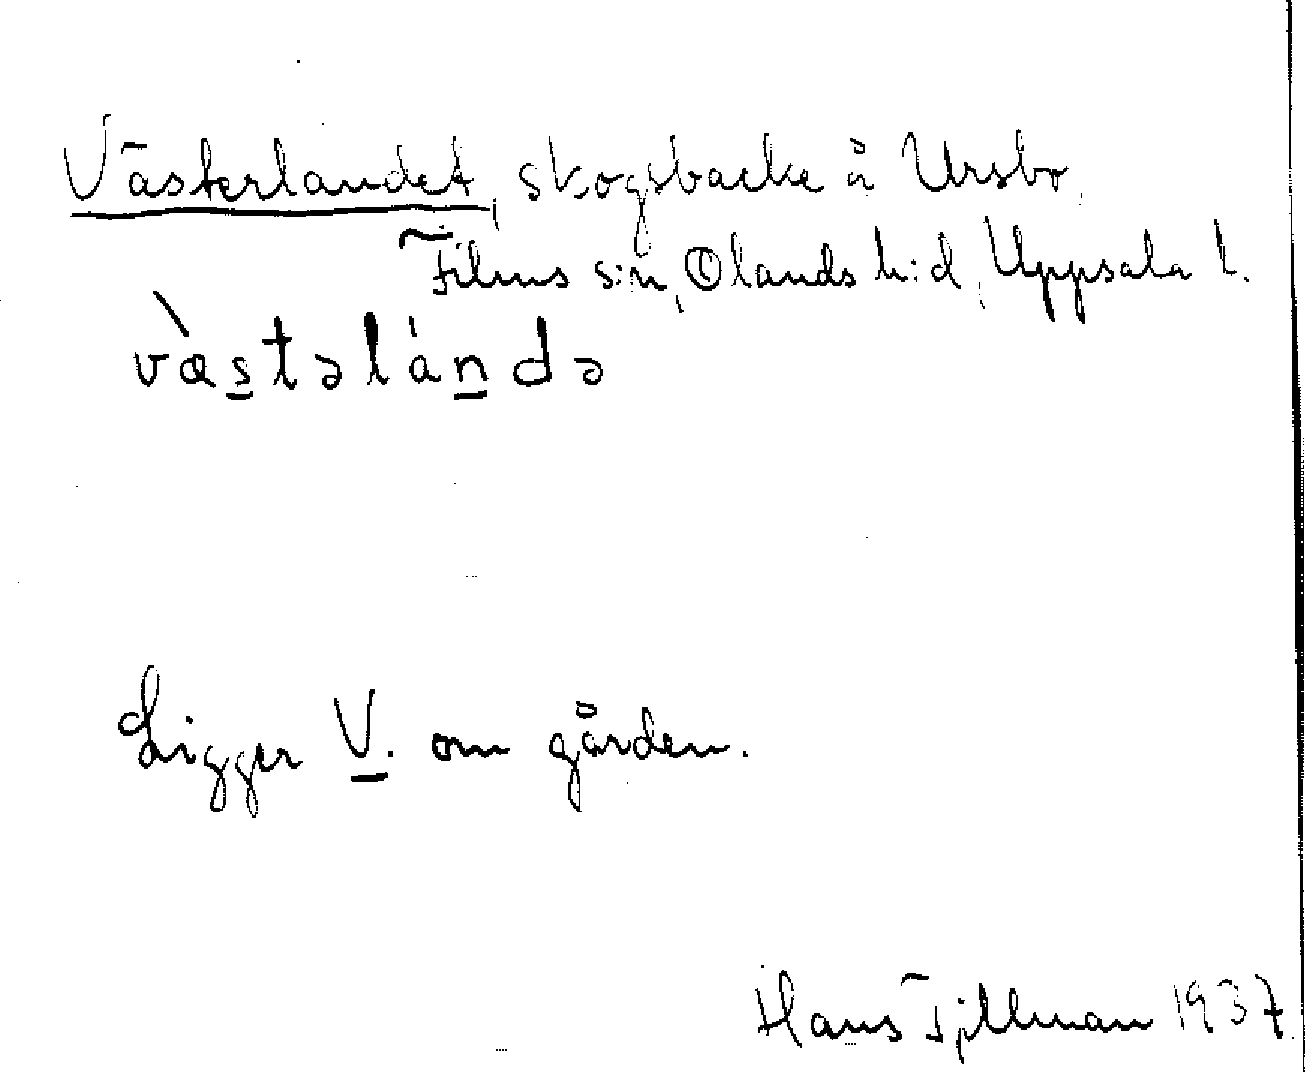 Västerlandet, skogsbacke å Ursbo,
Films s:n, Olands h:d, Uppsala l.
væ̀stəlándə
Ligger V. om gården.
Hans Tjillman 1937.